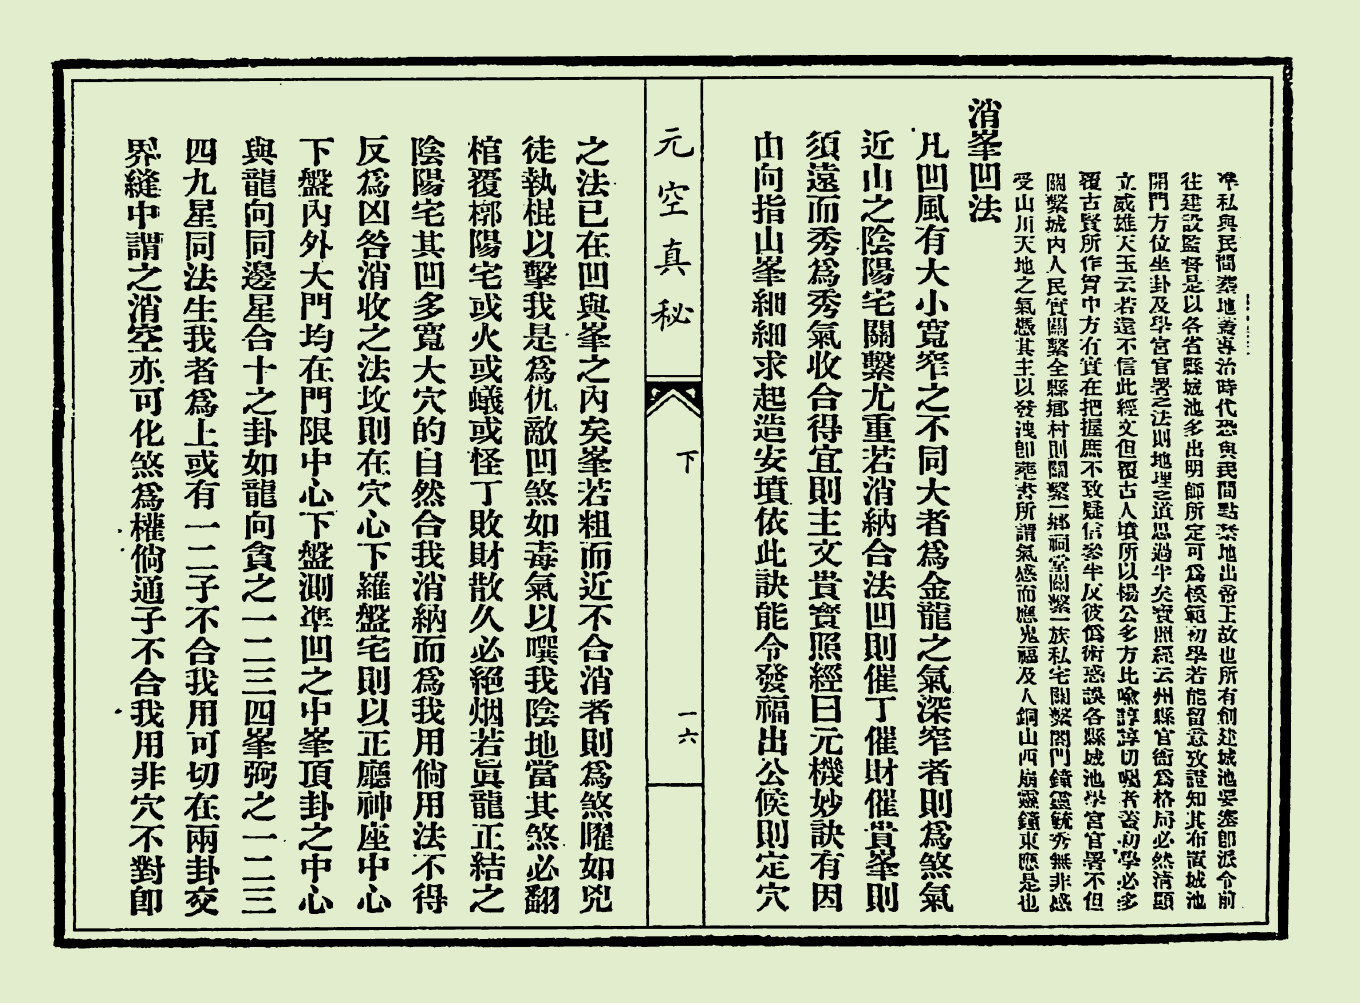 準私與民間葬地蓋專治時代恐與民間點葬地出帝王故也所有創建城池妥奏卽派令前
往建設監督是以各省縣城池多出明師所定可爲模範初學若能留意攷證知其布置城池
開門方位坐卦及學宮官署之法則地理之道思過半矣寶照經云州縣官衙爲格局必然清顯
立威雄天玉云若還不信此經文但覆古人墳所以楊公多方比喻諄諄切囑者蓋初學必多
覆古賢所作胷中方有實在把握庶不致疑信參半反彼僞術惑誤各縣城池學宮官署不但
關繫城内人民實關繫全縣鄉村則關繫一鄉祠堂關繫一族私宅關繫閤門鐘靈毓秀無非感
受山川天地之氣憑其主以發洩卽葬書所謂氣感而應鬼福及人銅山西崩靈鐘東應是也
消峯凹法
凡凹風有大小寬窄之不同大者為金龍之氣深窄者則為煞氣
近山之陰陽宅關繫尤重若消納合法凹則催丁催財催貴峯則
須遠而秀為秀氣收合得宜則主文貴寳照經曰元機妙訣有因
由向指山峯細細求起造安墳依此訣能令發福出公候則定穴
元空真秘
下
一六
之法已在凹與峯之内矣峯若粗而近不合消者則為煞曜如兇
徒執棍以擊我是為仇敵凹煞如毒氣以噀我陰地當其煞必翻
棺覆槨陽宅或火或蟻或怪丁敗財散久必絕烟若眞龍正結之
陰陽宅其凹多寬大穴的自然合我消納而為我用倘用法不得
反為凶咎消收之法坟則在穴心下羅盤宅則以正廳神座中心
下盤内外大門均在門限中心下盤測準凹之中峯頂卦之中心
與龍向同邊星合十之卦如龍向貪之一二三四峯弼之一二三
四九星同法生我者為上或有一二子不合我用可切在兩卦交
界縫中謂之消空亦可化煞為權倘通子不合我用非穴不對卽